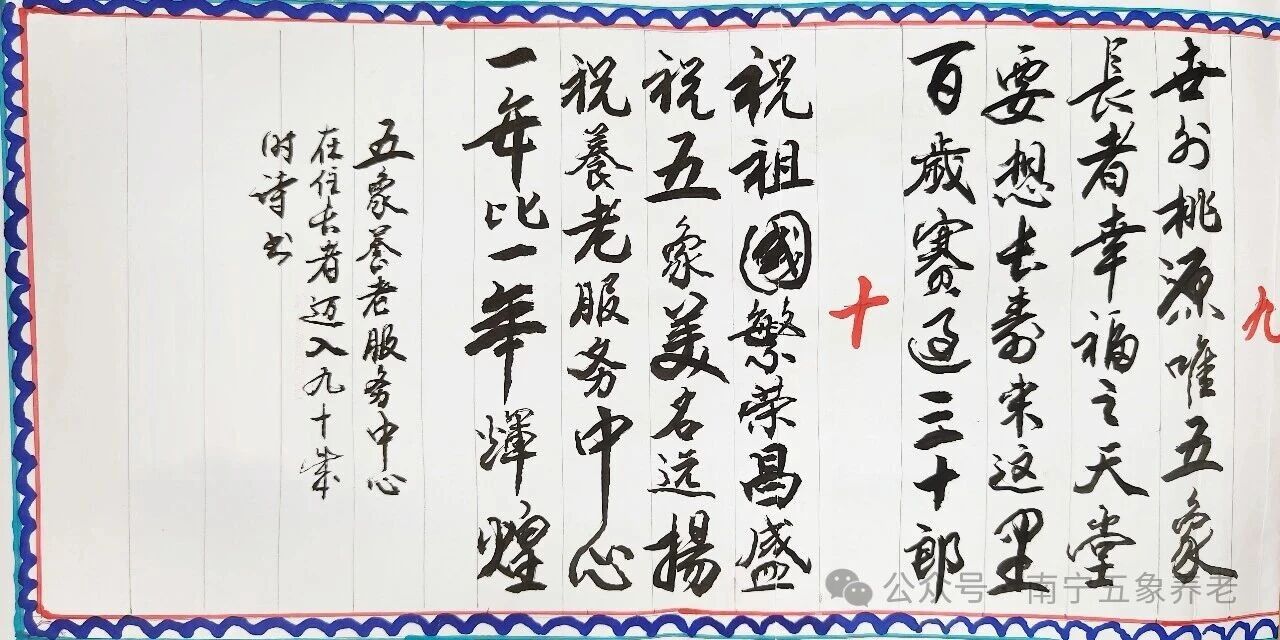 九
世外桃源唯五象
長者幸福之天堂
要想长寿来这里
百歲赛过三十郎
十
祝祖國繁荣昌盛
祝五象美名远揚
祝養老服务中心
一年比一年輝煌
五象养老服务中心
在住长者迈入九十岁
时诗书
公众号 · 南宁五象养老